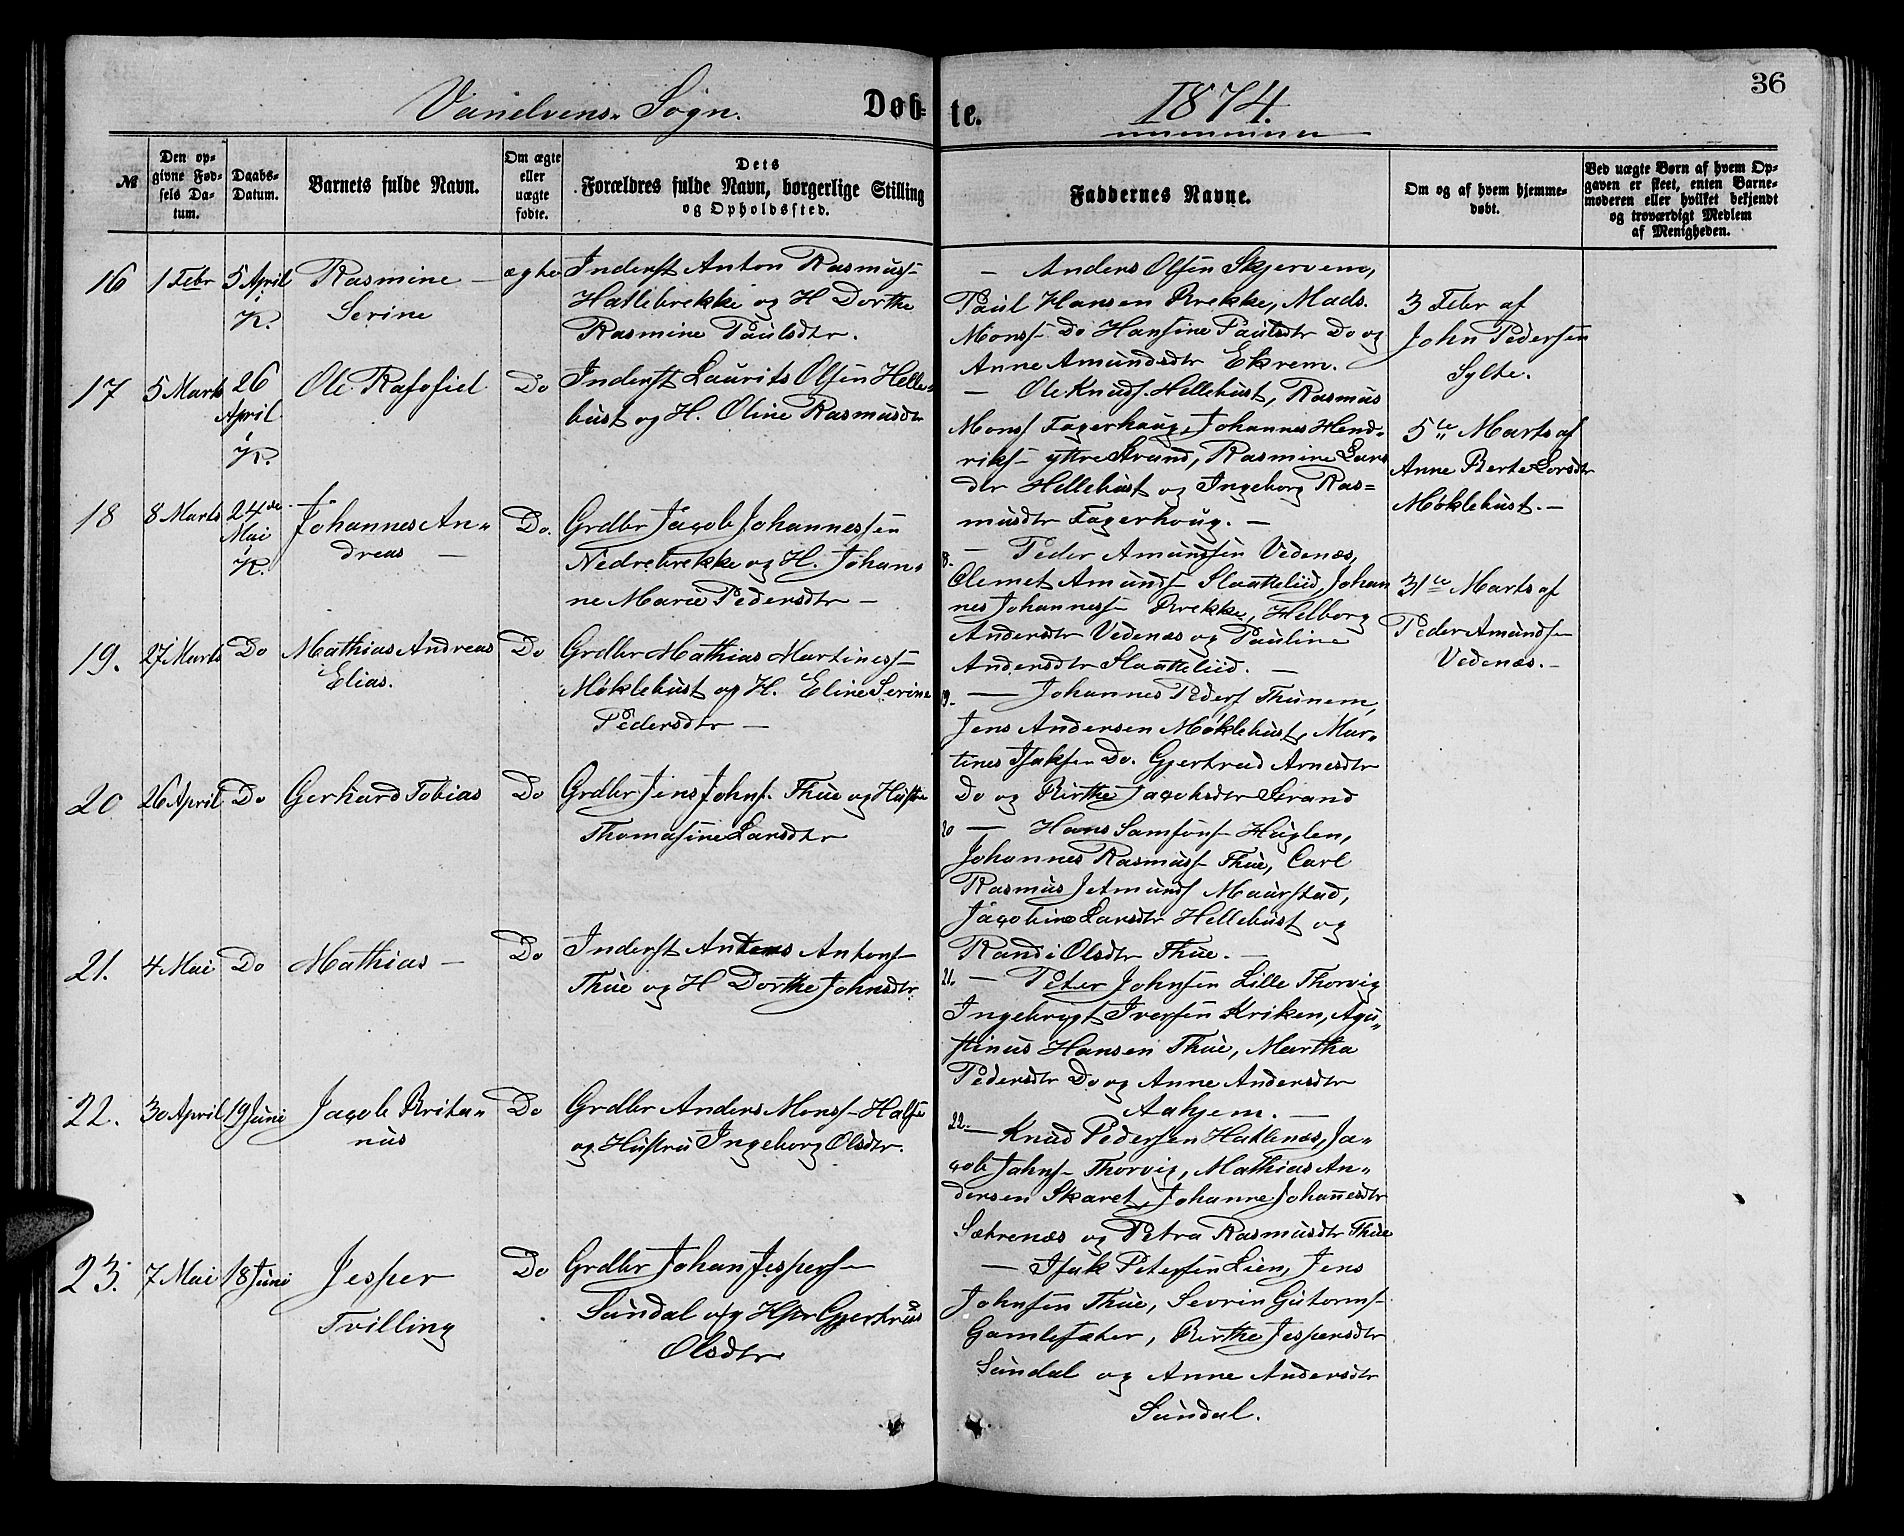 36
Vanelvens Sogn.
Døb-
te.
1874.
№
Den op-
givne Fød-
sels Da-
tum.
Daabs-
Datum.
Barnets fulde Navn.
Om ægte
eller
uægte
fødte.
Dets
Forældres fulde Navn, borgerlige Stilling
og Opholdssted.
Faddernes Navne.
Om og af hvem hjemme-
døbt.
Ved uægte Børn af hvem Op-
gaven er skeet, enten Barne-
moderen eller hvilket bekjendt
og troværdigt Medlem
af Menigheden.
16
1 Febr
5 April
i
K.
Rasmine —
Serine
ægte
Inderst Anton Rasmuss-
Hatlebrekke og H Dorthe
Rasmine Paulsdtr.
— Anders Olsen Skjervem,
Paul Hansen Brekke, Mads
Monss- Do Hansine Paulsdtr Do og
Anne Amundsdtr Ekrem.
3 Febr af
John Pedersen
Sylte.
17
5 Marts
26
April
i
K.
Ole Rafofiel
Do
Inderst Laurits Olsen Helle-
bust og H. Oline Rasmusdtr
— Ole Knuds. Hellebust, Rasmus
Monss Fagerhaug, Johannes Hend-
riks- yttre Strand, Rasmine Lars
dtr Hellebust og Ingeborg Ras=
musdtr Fagerhoug. —
5te Marts af
Anne Berte Larsdtr
Møklebust. —
18
8 Marts
24de
Mai
i
K.
Johannes An-
dreas —
Do.
Grdbr Jacob Johannessen
Nedrebrekke og H. Johan-
ne Marie Pedersdtr —
8. — Peder Amundsen Vedenæs,
Clemet Amunds- Slaatteliid, Johan
nes Johanness- Brekke, Helborg
Andersdtr Vedenæs og Pauline
Andersdtr Slaatteliid. —
31te Marts af
Peder Amundse-
Vedenæs. —
19.
27 Marts
Do
Mathias Andreas
Elias.
Do
Grdbr Mathias Martiness-
Møklebust og H. Eline Serine
Pedersdtr —
19. — Johannes Peders Thunem,
Jens Andersen Møklebust, Mar-
tines Isakse- Do. Gjertrud Arnesdtr
Do og Birthe Jacobsdtr Strand
20
26 April
Do
Gerhard Tobias
Do
Grdbr Jens Johns. Thue og Hustru
Thomasine Larsdtr
20 — Hans Samsons- Huglen,
Johannes Rasmuss- Thue, Carl
Rasmus Jetmunds Maurstad,
Jacobine Larsdtr Hellebust og
Randi Olsdtr Thue. —
21.
4 Mai
Do
Mathias —
Do
Inderst Antons-
Thue og H Dorthe Johnsdtr.
21. — Peter Johnsen Lille Thorvig
Ingebrygt Iversen Kriken, Agu-
stinus Hansen Thue, Martha
Pedersdtr Do og Anne Andersdtr
Aahjem. —
22.
30 April
19 Juni
Jacob Brita-
nus
Do
Grdbr Anders Monss- Halse
og Hustru Ingeborg Olsdtr.
22. — Knud Pedersen Hatlenæs, Ja-
cob Johns- Thorvig, Mathias An-
dersen Skaret, Johanne Johanesdtr
Sætrenæs og Petra Rasmusdtr Thue
23.
7 Mai
18 Juni
Jesper
Tvilling
Do
Grdbr Johan Jespers-
Sundal og Hst Gjertrud
Olsdtr
— Isak Petersen Lien, Jens
Johnsen Thue, Sevrin Gutorms-
Gamlesæter, Birthe Jespersdtr
Sundal og Anne Andersdtr
Sundal.